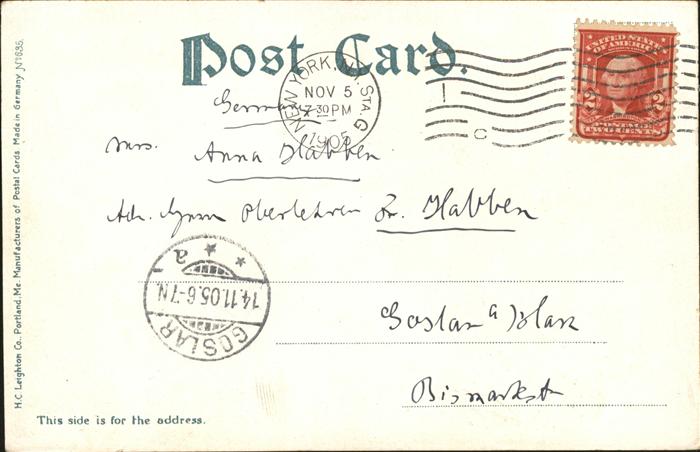 Post Card.
Germany
NEW YORK, N.Y. STA. G
NOV 5
7-30 PM
1905
C
UNITED STATES OF AMERICA
2 2
POSTAGE
TWO CENTS
Mrs.
Anna Habben
Adr. Herrn Oberlehrer Dr. Habben
GOSLAR
14.11.05.6-7N.
* * a
Goslar a/Harz
Bismarckstr
This side is for the address.
H.C. Leighton Co., Portland, Me. Manufacturers of Postal Cards Made in Germany No 1636.